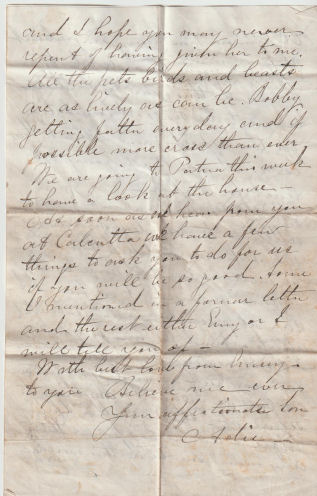 and I hope you may never
repent of having given her to me.
All the pets birds and beasts
are as lively as can be. Bobby
getting fatter every day and if
possible more cross than ever
We are going to Patna this week
to have a look at the house —
As soon as we hear from you
at Calcutta we have a few
things to ask you to do for us
if you will be so good. Some
I mentioned in a former letter
and the rest either Emy or I
will tell you of —
With best love from Emy
to you Believe me ever
Your affectionate son